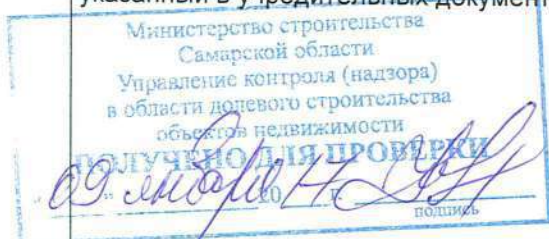 указанный в учредительных документ
Министерство строительства
Самарской области
Управление контроля (надзора)
в области долевого строительства
объектов недвижимости
ПОЛУЧЕНО ДЛЯ ПРОВЕРКИ
"09" января 2014 г.
подпись